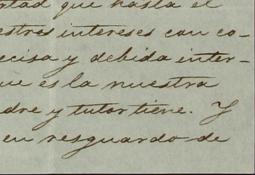 rtad que hasta el
estros intereses con co-
ecisa y debida inter-
ue es la nuestra
dre y tutor tiene. Y
en resguardo de